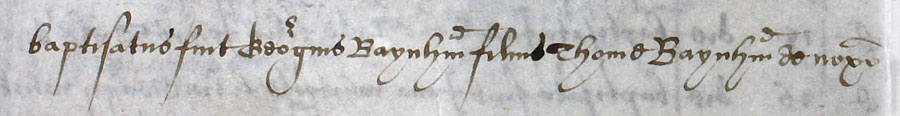 baptisatus fuit Georgius Baynhm̄ filius Thome Baynhm̄ de noxō